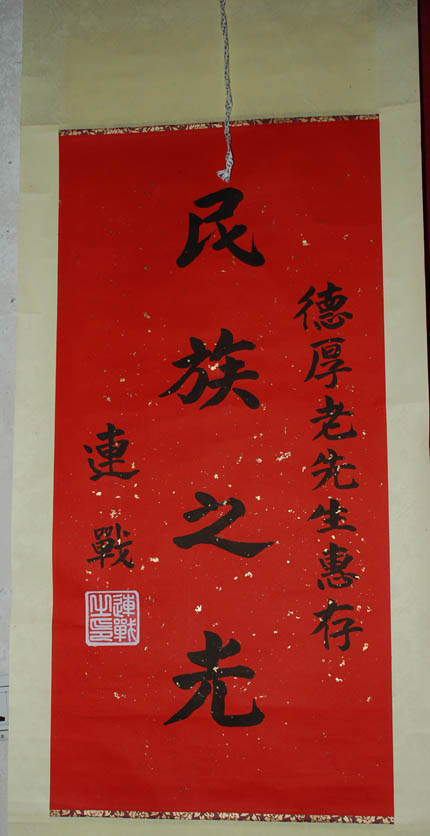 德厚老先生惠存
民族之光
連戰
連戰之印